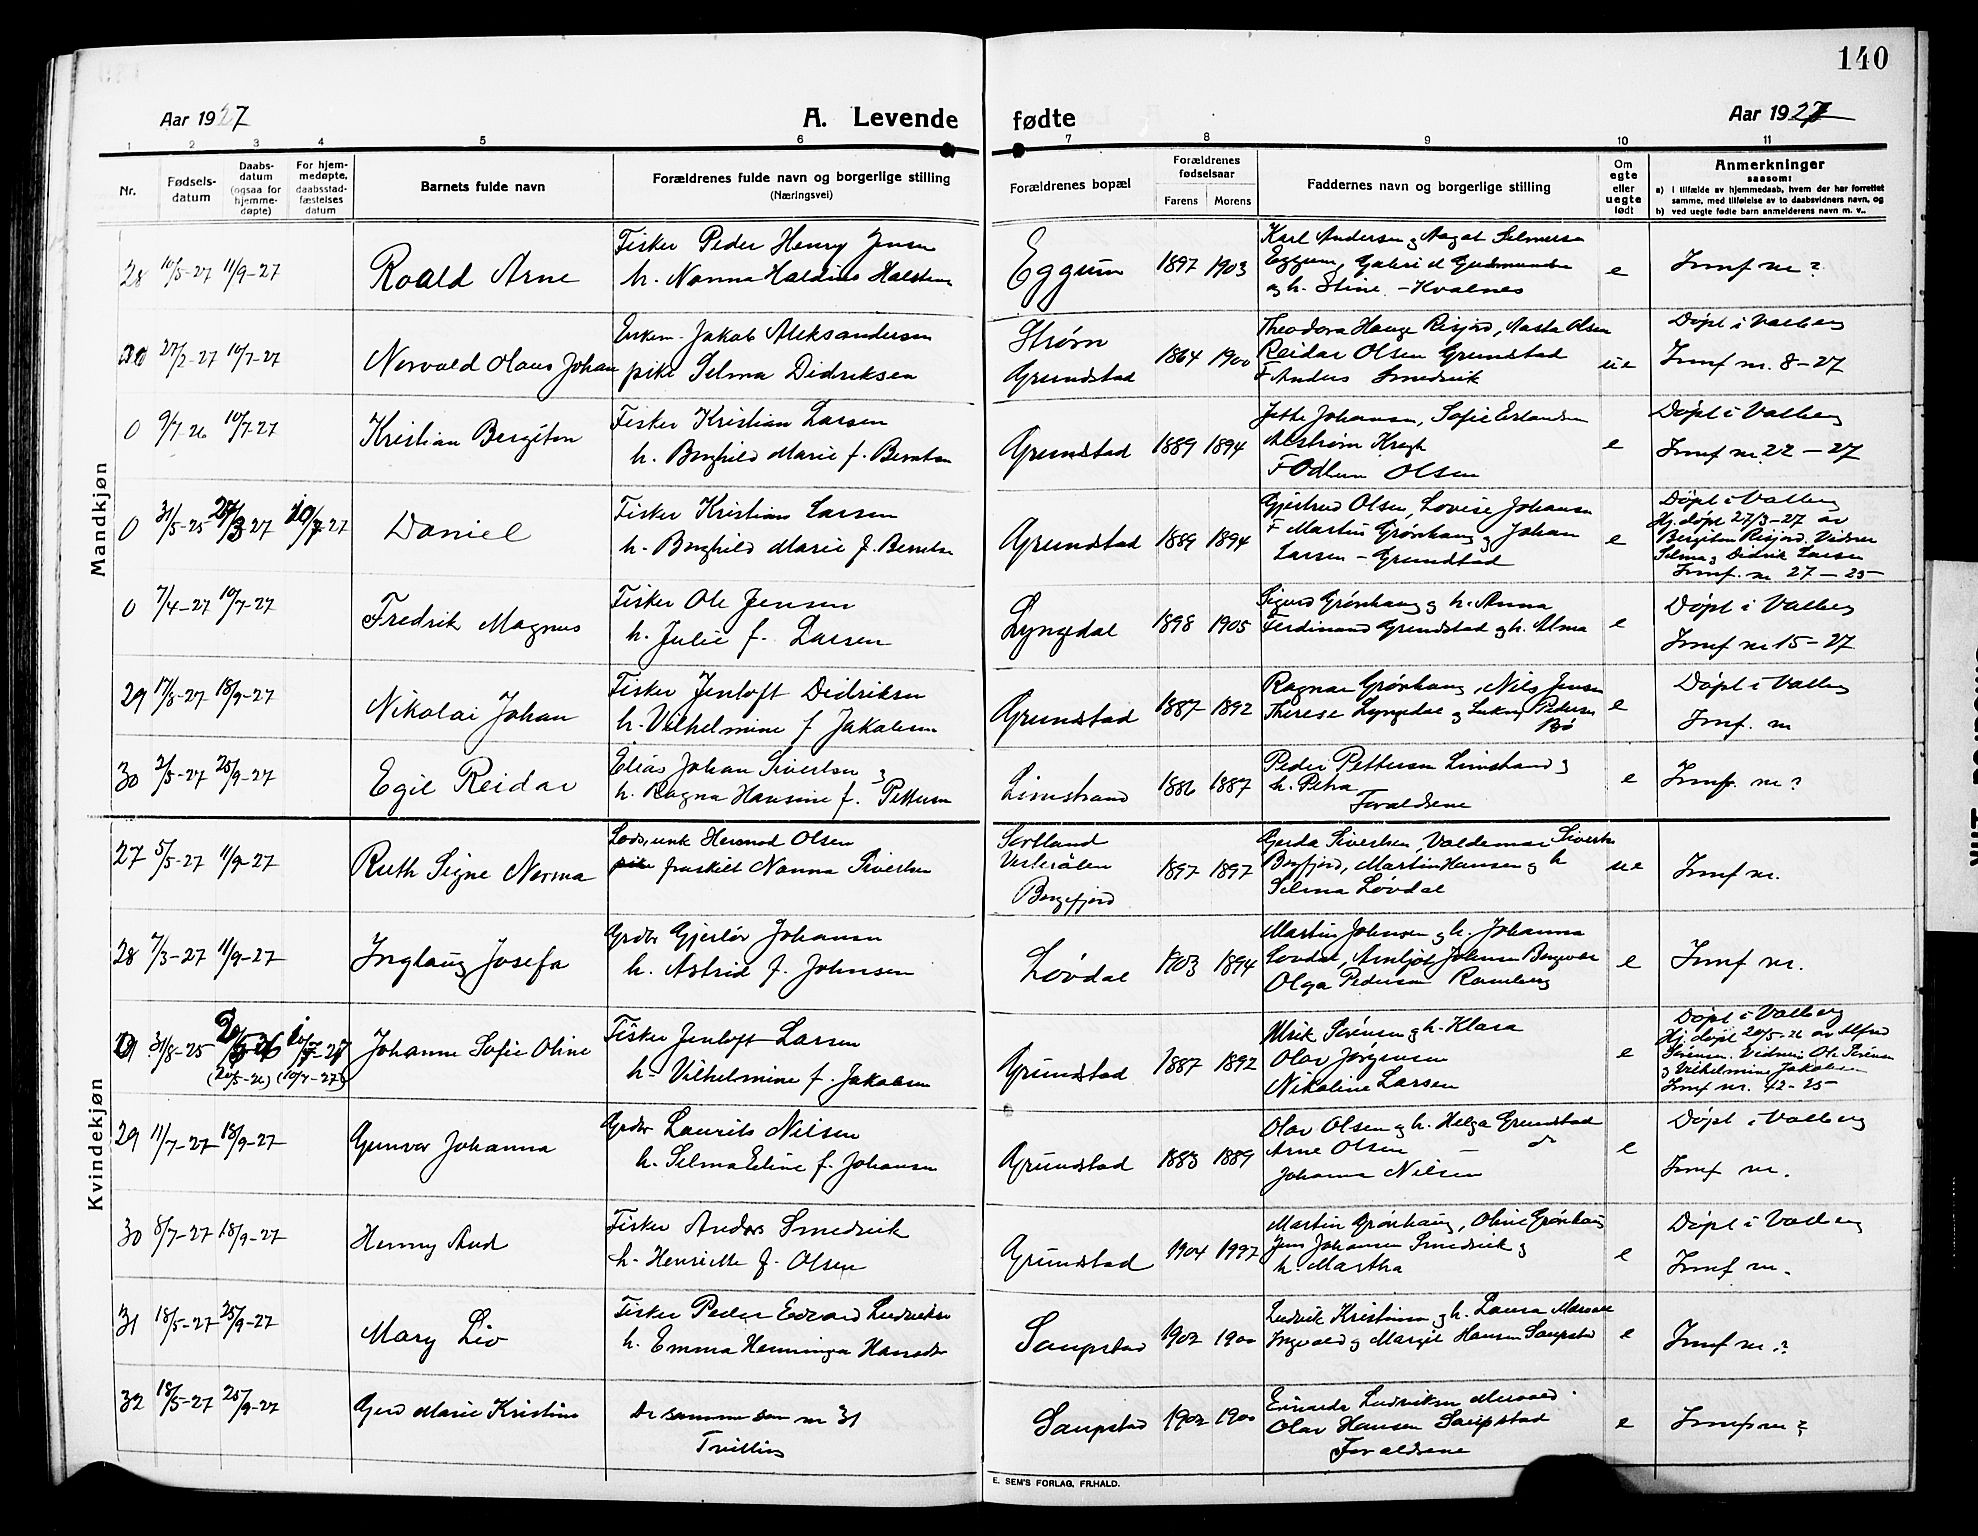 140
Aar 1927
A. Levende
fødte
Aar 1927
1 2 3 4 5 6 7 8 9 10 11
Nr.
Fødsels-
datum
Daabs-
datum
(ogsaa for
hjemme-
døpte)
For hjem-
medøpte,
daabsstad-
fæstelses
datum
Barnets fulde navn
Forældrenes fulde navn og borgerlige stilling
(Næringsvei)
Forældrenes bopæl
Forældrenes
fødselsaar
Farens
Morens
Faddernes navn og borgerlige stilling
Om
egte
eller
uegte
født
Anmerkninger
saasom:
a) i tilfælde av hjemmedaab, hvem der har forrettet
samme, med tilføielse av to daabsvidners navn, og
b) ved uegte fødte barn anmelderens navn m. v..
Mandkjøn
28 10/5-27 11/9-27 Roald Arne
Fisker Peder Henry Jensen
h. Nanna Haldis
Eggum 1897 1903
Karl Andersen og Aagot Selmersen
Eggum, Gabriel Gudmundsen
og h. Stine - Kvalnes
e
Innf nr ?
27/2-27 10/7-27 Norvald Olaus Johan
Enkem. Jakob Aleksandersen
pike Selma Didriksen
Strøm
Grundstad
1864 1900
Theodora Hauge Risjord, Aasta Olsen
Reidar Olsen Grundstad
F Anders Smedvik
ue
Døpt i Valberg
Innf nr. 8-27
0 9/7-26 10/7-27 Kristian Bergiton
Fisker Kristian Larsen
h. Borghild Marie f. Berntsen
Grundstad 1889 1894
Johansen, Sofie Erlandsen
F Odlum Olsen
e
Døpt i Valberg
Innf nr. 22-27
0 31/5-25 27/3-27 10/7-27 Daniel
Fisker Kristian Larsen
h. Borghild Marie f. Berntsen
Grundstad 1889 1894
Gjertrud Olsen, Lovise Johansen
F Martin Grønhaug og Johan
Larsen - Grundstad
e
Døpt i Valberg
Hj. døpt 27/3-27 av
Bergiton Risjord. Vidner
Selma og Didrik Larsen
Innf. nr 27-25
0 7/4-27 10/7-27 Fredrik Magnus
Fisker Ole Jensen
h. Julie f. Larsen
Lyngedal 1898 1905
Sigurd Grønhaug og h. Anna
Ferdinand Grundstad og h. Alma
e
Døpt i Valberg
Innf nr 15-27
29 17/8-27 18/9-27 Nikolai Johan
Fisker Jentoft Didriksen
h. Vilhelmine f Jakobsen
Grundstad 1887 1892
Ragnar Grønhaug, Nils Jensen
Therese Lyngedal og Pedersen
Bø
e
Døpt i Valberg
Innf. nr
30 2/5-27 25/9-27 Egil Reidar
Elias Johan Sivertsen og
h. Ragna Hansine f. Pettersen
Limstrand 1886 1887
Peder Pettersen Limstrand og
h. Petra
Forældrene
e
Innf. nr ?
Kvindekjøn
27 5/5-27 11/9-27 Ruth Signe Norma
Hermod Olsen
fraskilt Nanna Sivertsen
Sortland
Vesterålen
Borgefjord
1897 1897
Gerda Sivertsen, Valdemar Sivertsen
Borgfjord, Martin Hansen og h
Selma Løvdal
ue
Innf nr.
28 7/3-27 11/9-27 Inglaug Josefa
Grdbr Gjerløv Johansen
h. Astrid f. Johnsen
Løvdal 1903 1894
Martin Johnsen og h. Johanna
Løvdal, Arnljot Johnsen
Olga Pedersen Ramberg
e
Innf nr.
31/8-25 Johanne Sofie Oline
(20/5-26) (10/7-27)
Fisker Jentoft Larsen
h. Vilhelmine f. Jakobsen
Grundstad 1887 1892
Ulrik Sørensen og h. Klara
Olav Jørgensen
Nikoline Larsen
e
Døpt i Valberg
Hj. døpt 20/5-26 av Alfred
Sørensen. Vidner: Ole Sørensen
og Vilhelmine Jakobsen
Innf nr. 42-25
29 11/7-27 18/9-27 Gunvor Johanna
Grdbr Laurits Nilsen
h. Selma Eline f. Johansen
Grundstad 1883 1889
Olav Olsen og h. Helga Grundstad
Arne Olsen - do
Johanna Nilsen
e
Døpt i Valberg
Innf nr.
30 8/7-27 18/9-27 Henny Aud
Fisker Anders Smedvik
h. Henriette f. Olsen
Grundstad 1904 1997
Martin Grønhaug, Oline Grønhaug
Jens Johansen Smedvik og
h. Martha
e
Døpt i Valberg
Innf nr.
31 18/5-27 25/9-27 Mary Liv
Fisker Peder Edvard Ludviksen
h. Emma Henninga Hansdtr
Saupstad 1902 1900
Ludvik Kristiansen og h. Laura
Ingvald og Margit Hansen Saupstad
e
Innf nr. ?
32 18/5-27 25/9-27 Gerd Marie Kristine
De samme som nr 31
Tvilling
Saupstad 1902 1900
Ludviksen
Olav Hansen Saupstad
Forældrene
e
Innf nr ?
E. SEM'S FORLAG, FR.HALD.